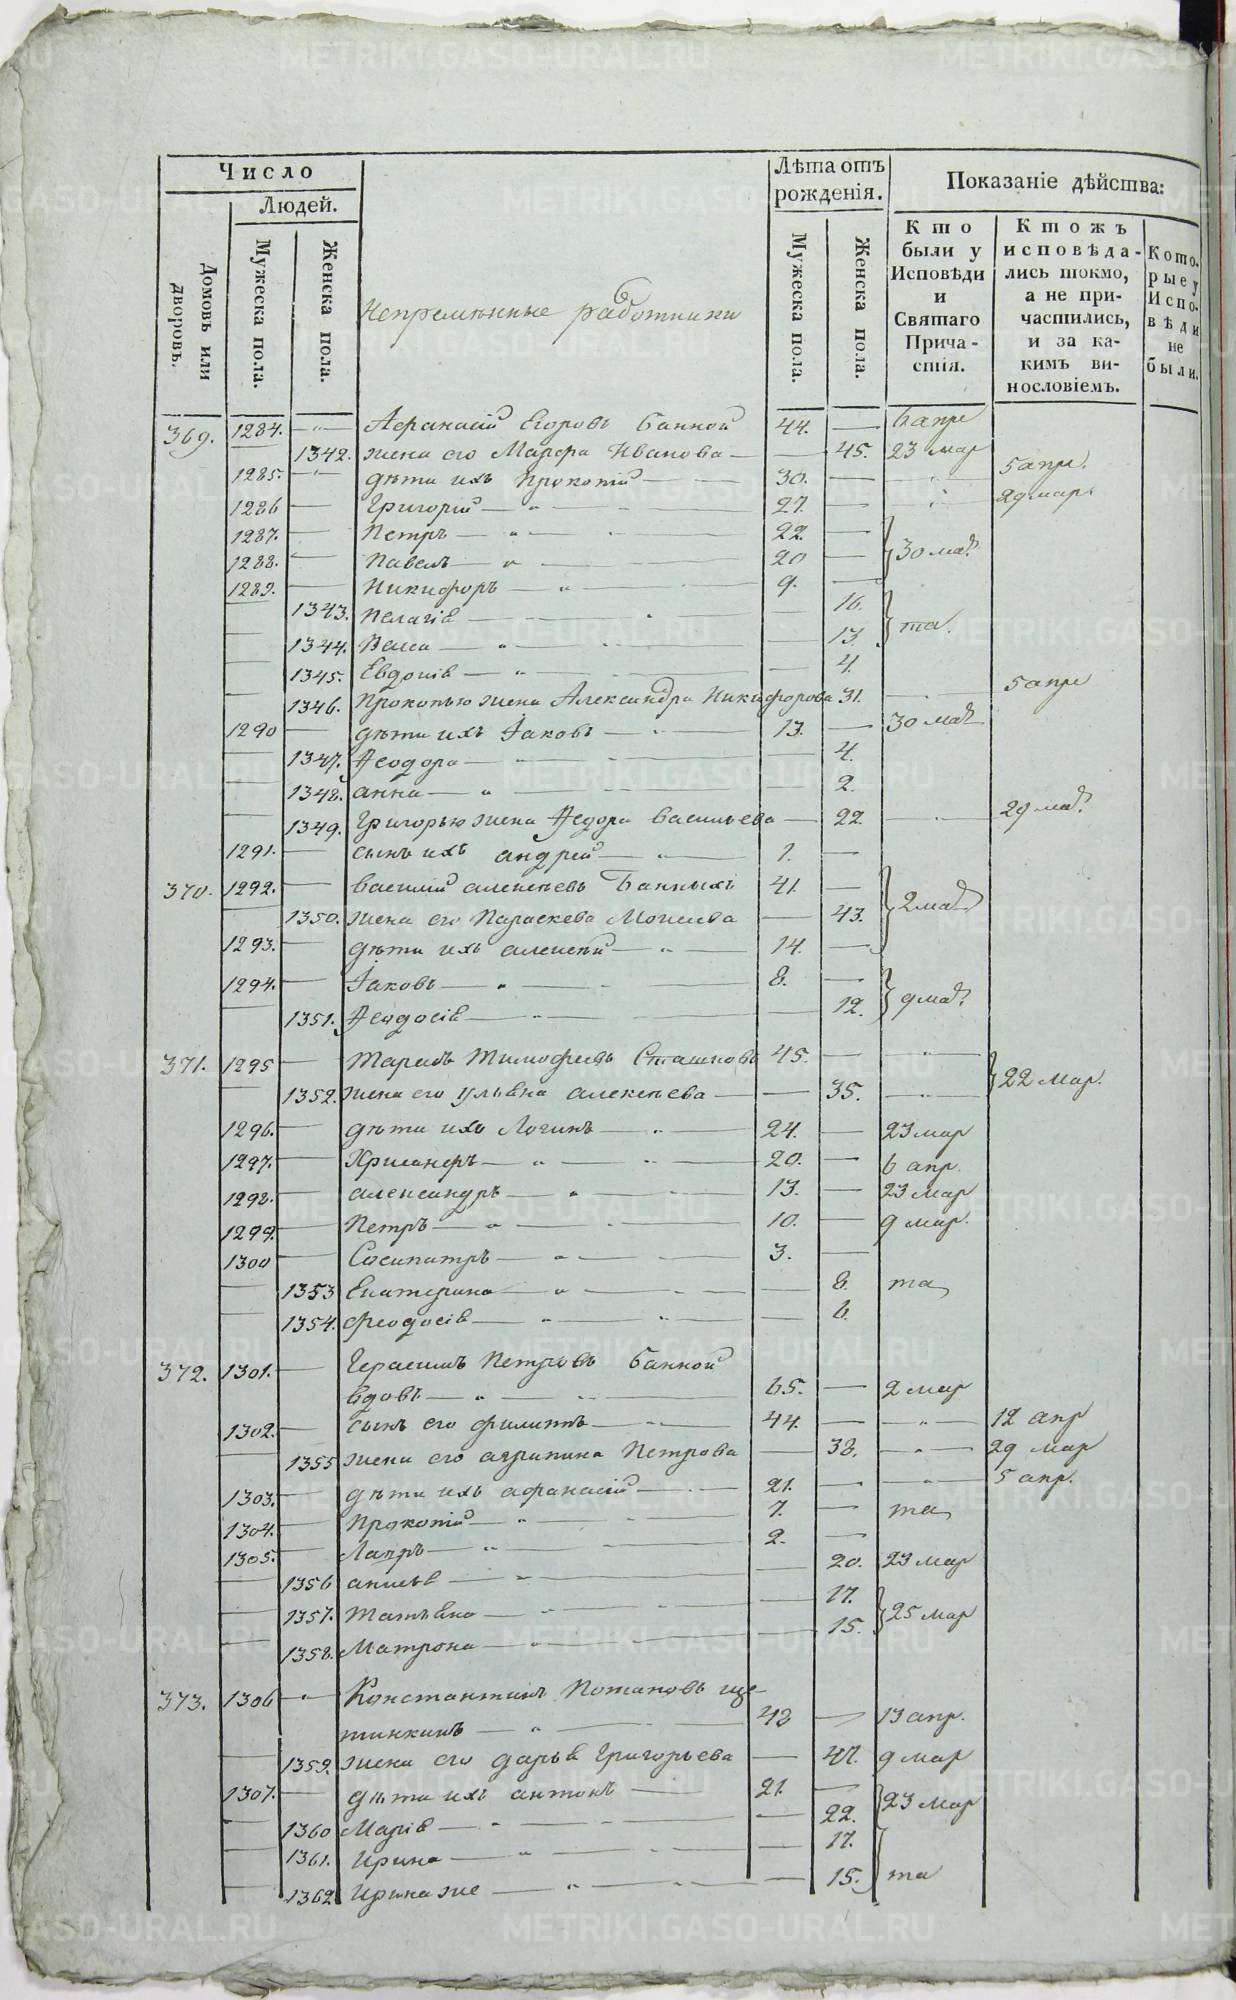 Число
Людей.
Домовъ или дворовъ.
Мужеска пола.
Женска пола.
Непремѣнные работники
Лѣта отъ рожденія.
Мужеска пола.
Женска пола.
Показаніе дѣйства:
Кто были у Исповѣди и Святаго Причастія.
Ктожъ исповѣдались токмо, а не причастились, и за какимъ винословіемъ.
Которые у Исповѣди не были.
369. 1284. Афанасій Егоровъ Банной 44. 6 апре
1342. жена его Марфа Иванова 45. 23 мар
1285. дѣти ихъ Прокопій 30. 5 апре.
1286 Григорій 27. 29 мар
1287. Петръ 22.
1288. Павелъ 20 30 мар
1289. Никифоръ 9.
1343. Пелагія 16.
1344. Васса 13 та.
1345. Евдокія 4.
1346. Прокопью жена Александра Никифорова 31. 5 апре
1290 дѣти ихъ Іаковъ 13. 30 мар
1347. Ѳеодора 4.
1348. анна 2.
1349. Григорью жена Ѳедора Васильева 22. 29 мар
1291. сынъ ихъ андрей 1.
370. 1292. василій алексѣевъ Банныхъ 41.
1350. жена его Параскева Моисеева 43. 2 мар
1293. дѣти ихъ алексѣй 14.
1294. Іаковъ 8. 9 мар
1351. Ѳеодосія 12.
371. 1295 Тарасъ Тимофеевъ Сташковъ 45.
22 мар.
1352. жена его ульяна алексѣева 35.
1296. дѣти ихъ Логинъ 24. 23 мар
1297. Хрисанфъ 20. 6 апр.
1298. александръ 13. 23 мар
1299. Петръ 10. 9 мар.
1300 Сосипатръ 3.
1353 Екатерина 8. та
1354. феодосія 6.
372. 1301. Герасимъ Петровъ Банной
вдовъ 65. 2 мар
1302. сынъ его филиппъ 44. 12 апр
1355 жена его агрипина Петрова 38. 29 мар
1303. дѣти ихъ афанасій 21. 5 апр.
1304. Прокопій 7. та
1305. Лавръ 2.
1356 анисья 20. 23 мар
1357. Татьяна 17.
25 мар
1358. Матрона 15.
373. 1306 Константинъ Потаповъ ще-
тинкинъ 42 13 апр.
1359. жена его дарья Григорьева 47. 9 мар
1307. дѣти ихъ антонъ 21.
23 мар
1360 Марія 22.
1361. Ирина 17.
1362 Ирина же 15. та
METRIKI.GASO-URAL.RU